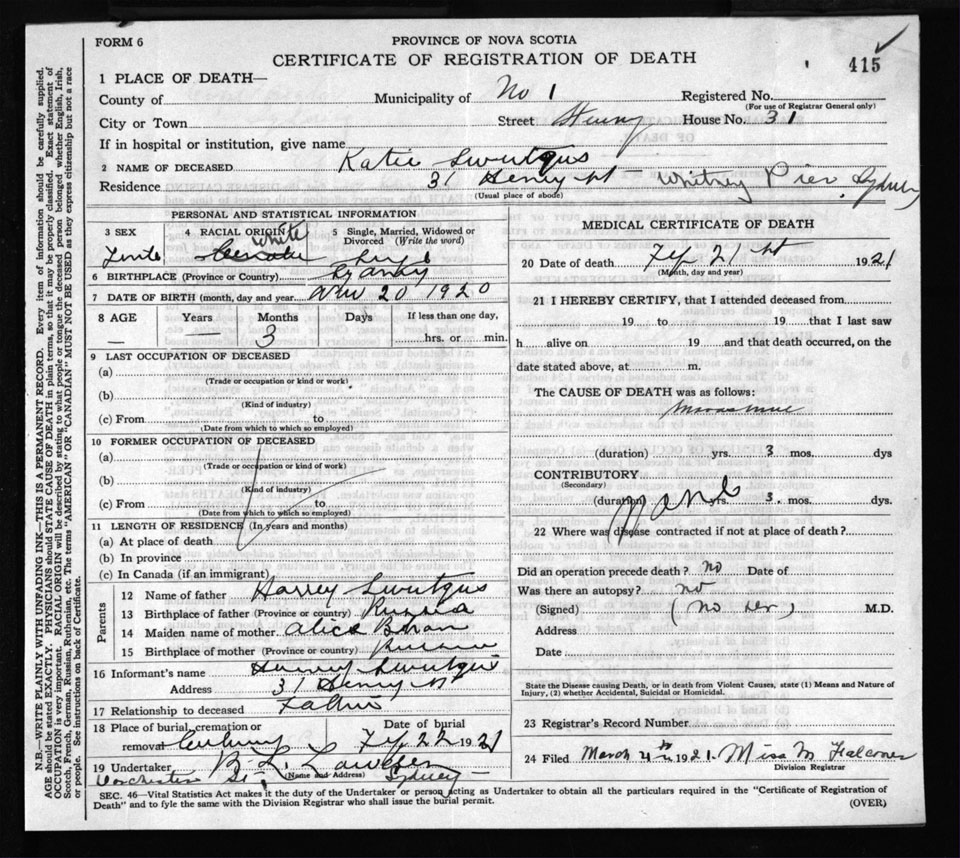 FORM 6
PROVINCE OF NOVA SCOTIA
CERTIFICATE OF REGISTRATION OF DEATH
415
1 PLACE OF DEATH—
County of Municipality of No 1 Registered No.
(For use of Registrar General only)
City or Town Street Henry House No. 31
If in hospital or institution, give name
2 NAME OF DECEASED Katie
Residence 31 Henry st Whitney Pier Sydney
(Usual place of abode)
PERSONAL AND STATISTICAL INFORMATION
3 SEX 4 RACIAL ORIGIN 5 Single, Married, Widowed or Divorced (Write the word)
White
6 BIRTHPLACE (Province or Country)
7 DATE OF BIRTH (month, day and year) Nov 20 1920
8 AGE Years Months Days If less than one day,
— — 3 hrs. or min.
9 LAST OCCUPATION OF DECEASED
(a)
(Trade or occupation or kind or work)
(b)
(Kind of industry)
(c) From to
(Date from which to which so employed)
10 FORMER OCCUPATION OF DECEASED
(a)
(Trade or occupation or kind of work)
(b)
(Kind of industry)
(c) From to
(Date from which to which so employed)
11 LENGTH OF RESIDENCE (In years and months)
(a) At place of death
(b) In province
(c) In Canada (if an immigrant)
Parents
12 Name of father Harrey
13 Birthplace of father (Province or country) Russia
14 Maiden name of mother Alice
15 Birthplace of mother (Province or country) Russia
16 Informant's name Harrey
Address 31 Henry St
17 Relationship to deceased Father
18 Place of burial, cremation or removal Date of burial
Feb 22 1921
19 Undertaker
(Name and Address)
Dorchester St, Sydney
MEDICAL CERTIFICATE OF DEATH
20 Date of death Feb 21 st 1921
(Month, day and year)
21 I HEREBY CERTIFY, that I attended deceased from
19 to 19 that I last saw
h alive on 19 and that death occurred, on
date stated above, at m.
The CAUSE OF DEATH was as follows:
(duration) yrs. 3 mos. dys
CONTRIBUTORY
(Secondary)
None
(duration) yrs. 3. mos. dys.
22 Where was disease contracted if not at place of death?
Did an operation precede death? no Date of
Was there an autopsy? no
(Signed) (no Dr,) M.D.
Address
Date
State the Disease causing Death, or in death from Violent Causes, state (1) Means and Nature of
Injury, (2) whether Accidental, Suicidal or Homicidal.
23 Registrar's Record Number
24 Filed March 4th 1921. Miss M Falconer
Division Registrar
SEC. 46—Vital Statistics Act makes it the duty of the Undertaker or person acting as Undertaker to obtain all the particulars required in the "Certificate of Registration of
Death" and to fyle the same with the Division Registrar who shall issue the burial permit.
(OVER)
N.B.—WRITE PLAINLY WITH UNFADING INK—THIS IS A PERMANENT RECORD. Every item of information should be carefully supplied.
AGE should be stated EXACTLY. PHYSICIANS should STATE CAUSE OF DEATH in plain terms, so that it may be properly classified. Exact statement of
OCCUPATION is very important. RACIAL ORIGIN will be described by stating to what people or tongue the deceased person belonged whether English, Irish,
Scotch, French, German, Russian, Ruthenian, etc. The terms "AMERICAN" OR "CANADIAN" MUST NOT BE USED as they express citizenship but not a race
or people. See instructions on back of Certificate.